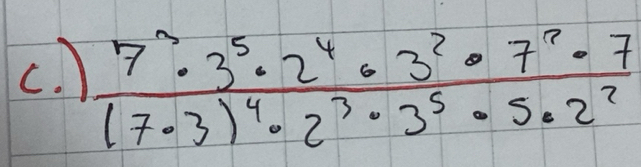 c.) 7³ · 3⁵ · 2⁴ · 3² · 7² · 7
(7 · 3)⁴ · 2³ · 3⁵ · 5 · 2²